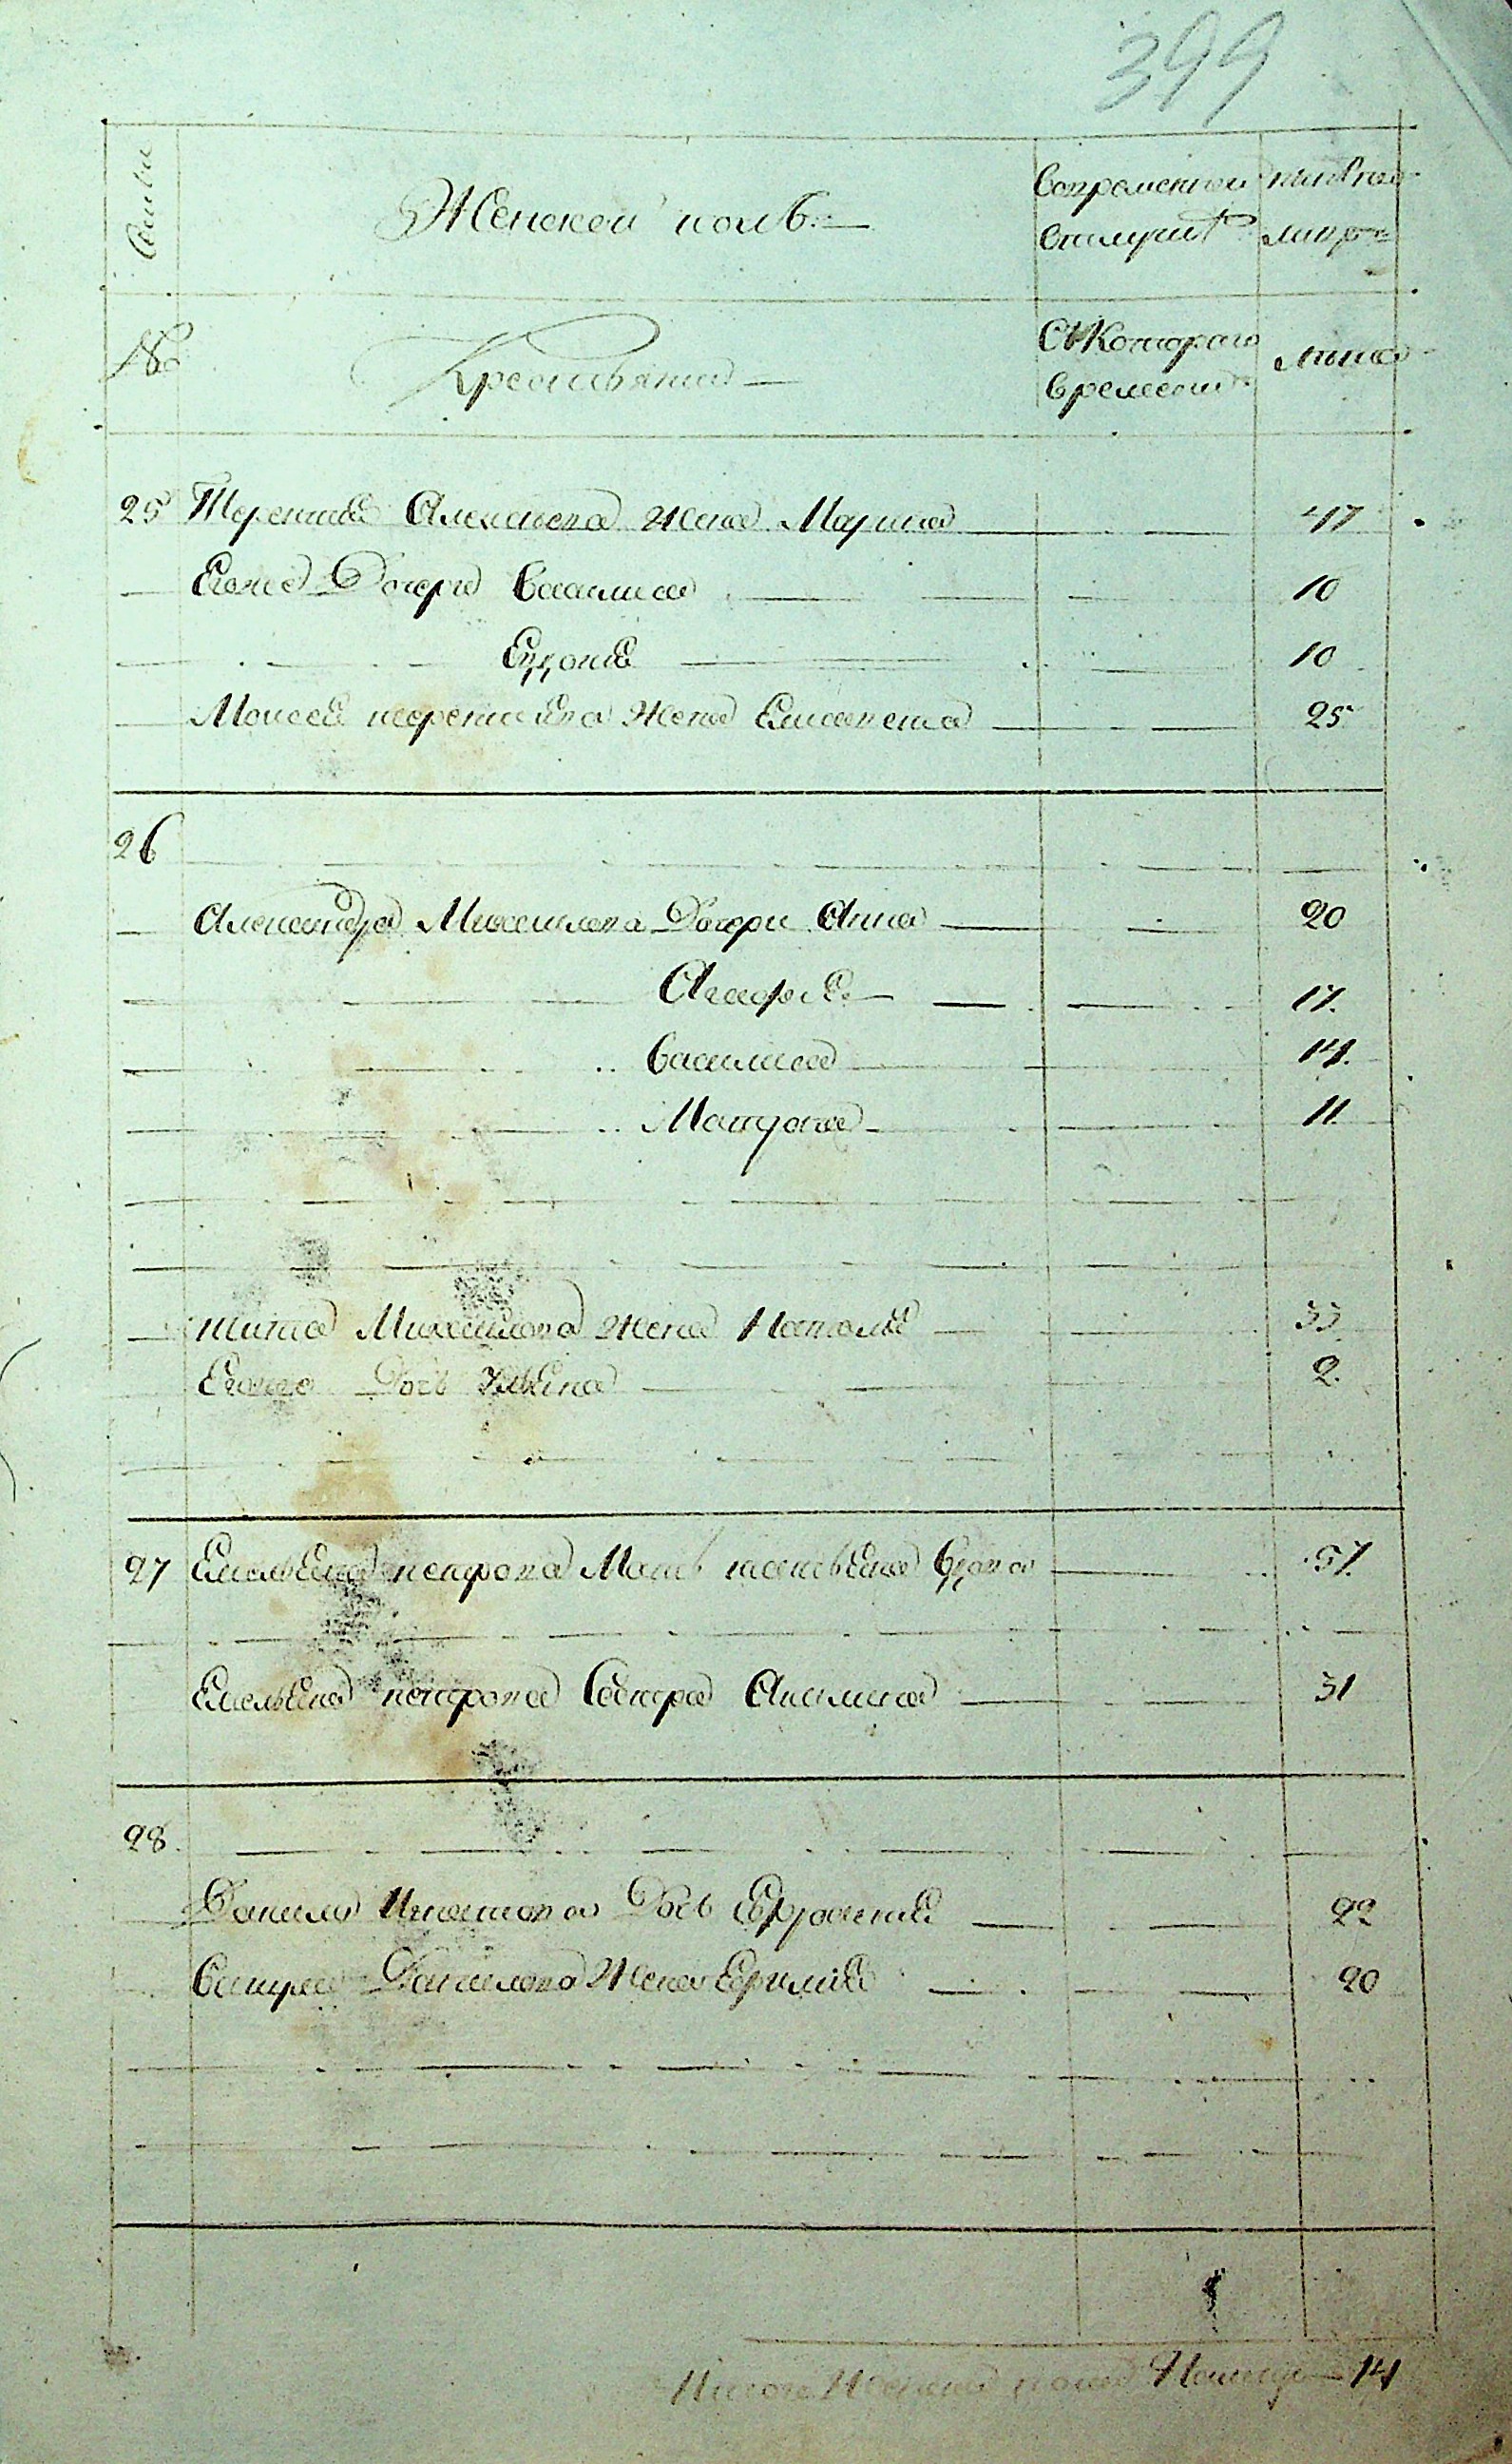 399
Семьи
Женской полъ.
Во временной отлучкѣ
ныне на лицо
№
Крестьяня
Съ Котораго времени
Лета
25 Терентия Алексеева жена Марина 47
Его же Дочери Василиса 10
Евдокия 10
Моисея терентиева Жена Елисавета 25
26
Александра Михаилова Дочери Анна 20
Агафия 17.
Василиса 14.
Матрона 11.
тита Михаилова жена Наталия 33
Его Дочь 2.
27 Емельяна петрова Мать татьяна Вдова 57.
Емельяна петрова Сестра Акилина 31
28.
Данила Игнатова Дочь Ефросиния 22
Данилова Жена 20
Итого Женска пола На лицо 14